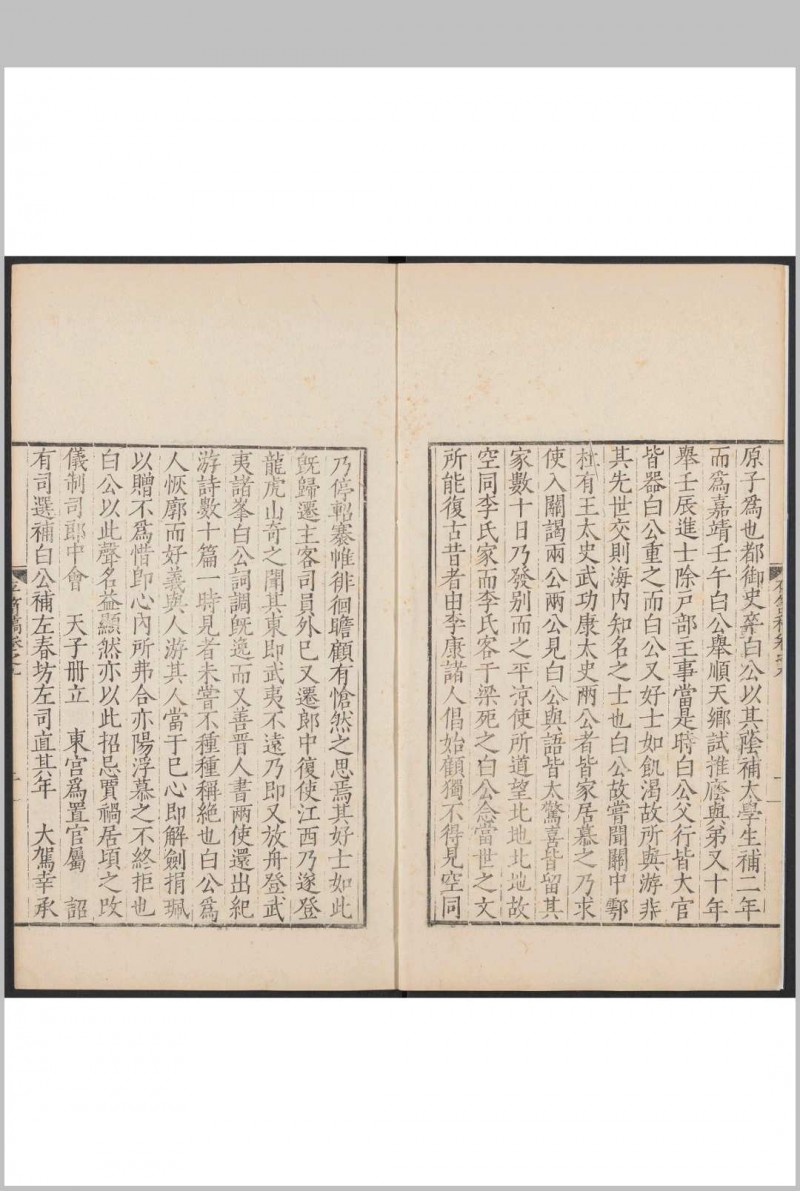 原子爲也都御史卒白公以其蔭補太學生補二年
而爲嘉靖壬午白公舉順天鄉試推廕與弟又十年
舉壬辰進士除戸部主事當是時白公父行皆大官
皆器白公重之而白公又好士如飢渴故所與游非
其先世交則海内知名之士也白公故嘗聞關中鄠
杜有王太史武功康太史兩公者皆家居慕之乃求
使入關謁兩公兩公見白公與語皆太驚喜皆留其
家數十日乃發别而之平凉使所道望北地北地故
空同李氏家而李氏客于梁死之白公念當世之文
所能復古昔者由李康諸人倡始顧獨不得見空同
乃停軺褰帷徘徊瞻顧有愴然之思焉其好士如此
旣歸遷主客司員外已又遷郎中復使江西乃遂登
龍虎山奇之聞其東即武夷不遠乃即又放舟登武
夷諸峯白公詞調旣逸而又善晋人書兩使還出紀
游詩數十篇一時見者未嘗不種種稱絶也白公爲
人恢廓而好義與人游其人當于已心即解劍捐珮
以贈不爲惜即心内所弗合亦陽浮慕之不終拒也
白公以此聲名益顯然亦以此招忌賈禍居頃之攺
儀制司郎中會 天子冊立 東宫爲置官屬 詔
有司選補白公補左春坊左司直其年 大駕幸承